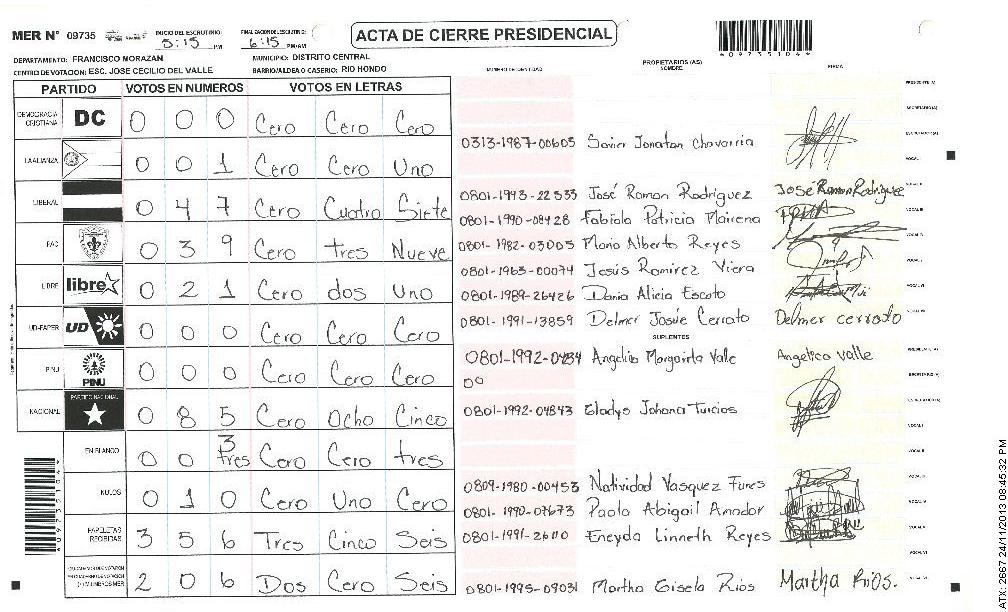 MER N° 09735 INICIO DEL ESCRUTINIO: 5:15 PM FINALIZACION DEL ESCRUTINIO: 6:15 PM/AM
ACTA DE CIERRE PRESIDENCIAL
*09735104*
DEPARTAMENTO: FRANCISCO MORAZAN MUNICIPIO: DISTRITO CENTRAL
CENTRO DE VOTACION: ESC. JOSE CECILIO DEL VALLE BARRIO/ALDEA O CASERIO: RIO HONDO
NUMERO DE IDENTIDAD PROPIETARIOS (AS) NOMBRE FIRMA
PARTIDO VOTOS EN NUMEROS VOTOS EN LETRAS
DEMOCRACIA CRISTIANA DC 0 0 0 Cero Cero Cero
LA ALIANZA 0 0 1 Cero Cero Uno
LIBERAL 0 4 7 Cero Cuatro Siete
PAC 0 3 9 Cero tres Nueve
LIBRE libre 0 2 1 Cero dos Uno
UD-FAPER UD 0 0 0 Cero Cero Cero
PINU PINU 0 0 0 Cero Cero Cero
NACIONAL PARTIDO NACIONAL 0 8 5 Cero Ocho Cinco
EN BLANCO 0 0 3 tres Cero Cero tres
NULOS 0 1 0 Cero Uno Cero
PAPELETAS RECIBIDAS 3 5 6 Tres Cinco Seis
2 0 6 Dos Cero Seis
PRESIDENTE (A)
SECRETARIO (A)
0313-1987-00605 Javier Jonatan Chavarria ESCRUTADOR (A)
VOCAL I
0801-1943-22533 José Ramon Rodriguez José Ramon Rodriguez
0801-1990-08428 Fabiola Patricia Mairena
0801-1982-03005 Mario Alberto Reyes
0801-1963-00074 Jesús Ramirez Viera
0801-1989-26426 Dania Alicia Escoto
0801-1991-13859 Delmer Josúe Cerrato Delmer cerrato
SUPLENTES
0801-1992-0484 Angelica Margarita Valle Angelica Valle PRESIDENTE (A)
00 SECRETARIO (A)
0801-1992-04843 Gladys Johana Turcios ESCRUTADOR (A)
VOCAL I
VOCAL II
0809-1980-00453 Natividad Vasquez Funes VOCAL III
0801-1990-07673 Paola Abigail Amador VOCAL IV
0801-1991-26110 Eneyda Linneth Reyes VOCAL V
0801-1995-09031 Martha Gisela Rios Martha Rios.
*09735104*
ATX 2967 24/11/2013 08:45:32 PM